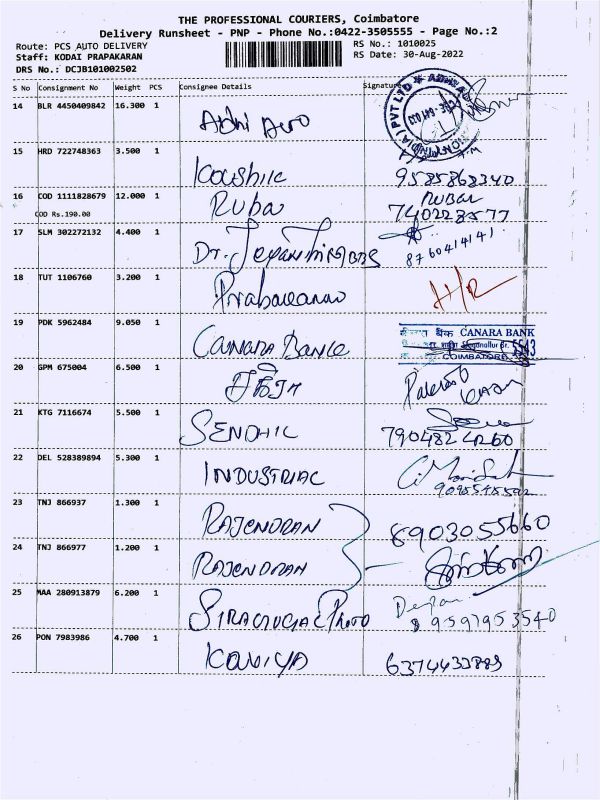 THE PROFESSIONAL COURIERS, Coimbatore
Delivery Runsheet - PNP - Phone No.:0422-3505555 - Page No.:2
Route: PCS AUTO DELIVERY
RS No.: 1010025
Staff: KODAI PRAPAKARAN
RS Date: 30-Aug-2022
DRS No.: DCJB101002502
S No Consignment No Weight PCS Consignee Details Signature
14 BLR 4450409842 16.300 1 Abhi Auto
15 HRD 722748363 3.500 1 Koushik 9585868340
16 COD 1111828679 12.000 1 Ruba RUBAL
COD Rs.190.00 740228577
17 SLM 302272132 4.400 1 Dr. 8760414141
18 TUT 1106760 3.200 1 Prabakaran
19 PDK 5962484 9.050 1 CANARA BANK CANARA BANK
COIMBATORE
20 GPM 675004 6.500 1
21 KTG 7116674 5.500 1 SENDHIL 7904824260
22 DEL 528389894 5.300 1 INDUSTRIAL
23 TNJ 866937 1.300 1 RAJENDRAN 8903055660
24 TNJ 866977 1.200 1 RAJENDRAN
25 MAA 280913879 6.200 1 9597953540
26 PON 7983986 4.700 1 KAVIYA 6374433889